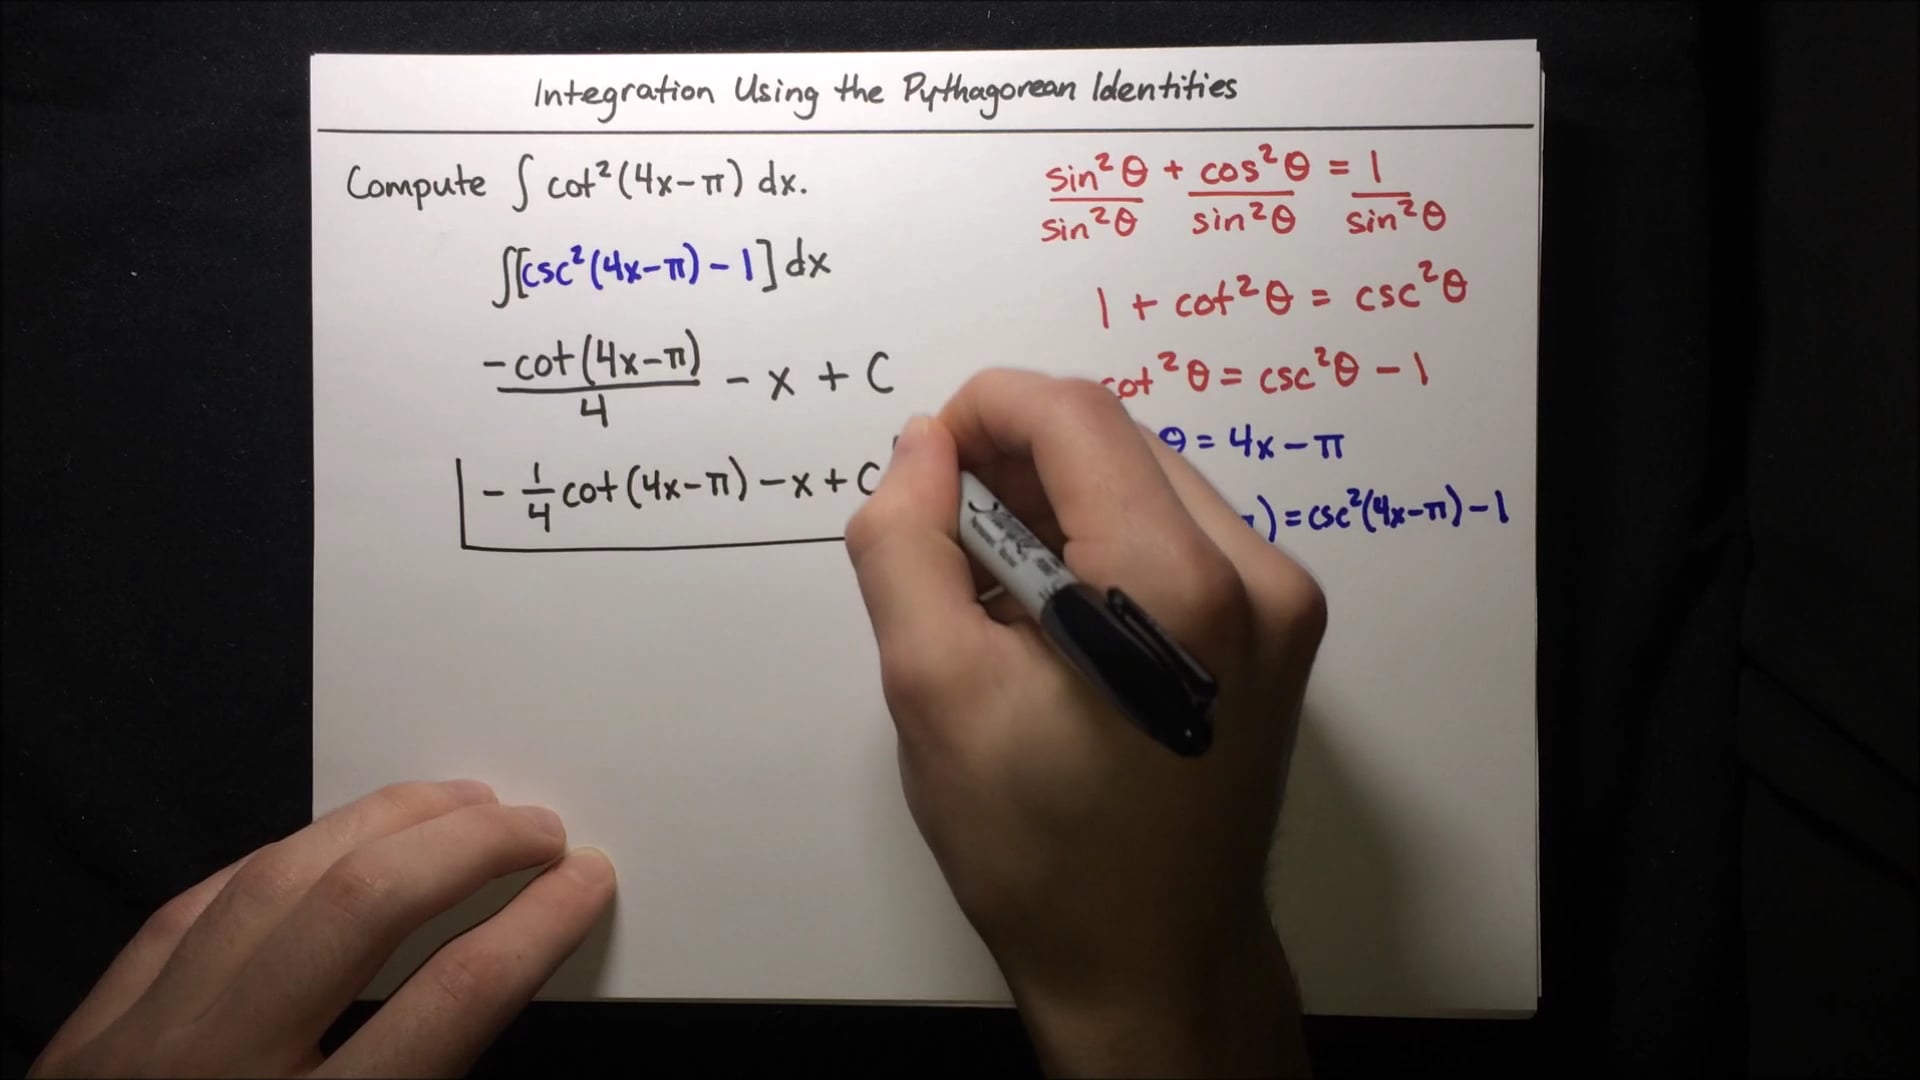 Integration Using the Pythagorean Identities
Compute ∫ cot²(4x-π) dx.
∫[csc²(4x-π) - 1] dx
-cot(4x-π)/4 - x + C
- 1/4 cot(4x-π) - x + C
sin²θ/sin²θ + cos²θ/sin²θ = 1/sin²θ
1 + cot²θ = csc²θ
cot²θ = csc²θ - 1
θ = 4x - π
) = csc²(4x-π) - 1
Sharpie